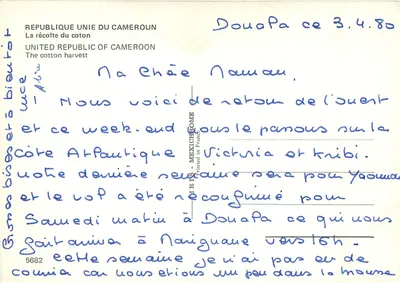 REPUBLIQUE UNIE DU CAMEROUN
La récolte du coton
UNITED REPUBLIC OF CAMEROON
The cotton harvest
Douala ce 3.4.80
Ma Chée Maman.
Nous voici de retour de l'ouest
et ce week-end nous le passons sur la
côte Atlantique Victoria et Kribi.
notre dernière semaine sera pour Yaoundé
et le vol a été reconfirmé pour
Samedi matin à Douala ce qui nous
fait arriver à Marignane vers 16h.
cette semaine je n'ai pas eu de
courrier car nous étions un peu dans la brousse
5682
Grosses bises et à bientôt
MEXICHROME
Printed in France